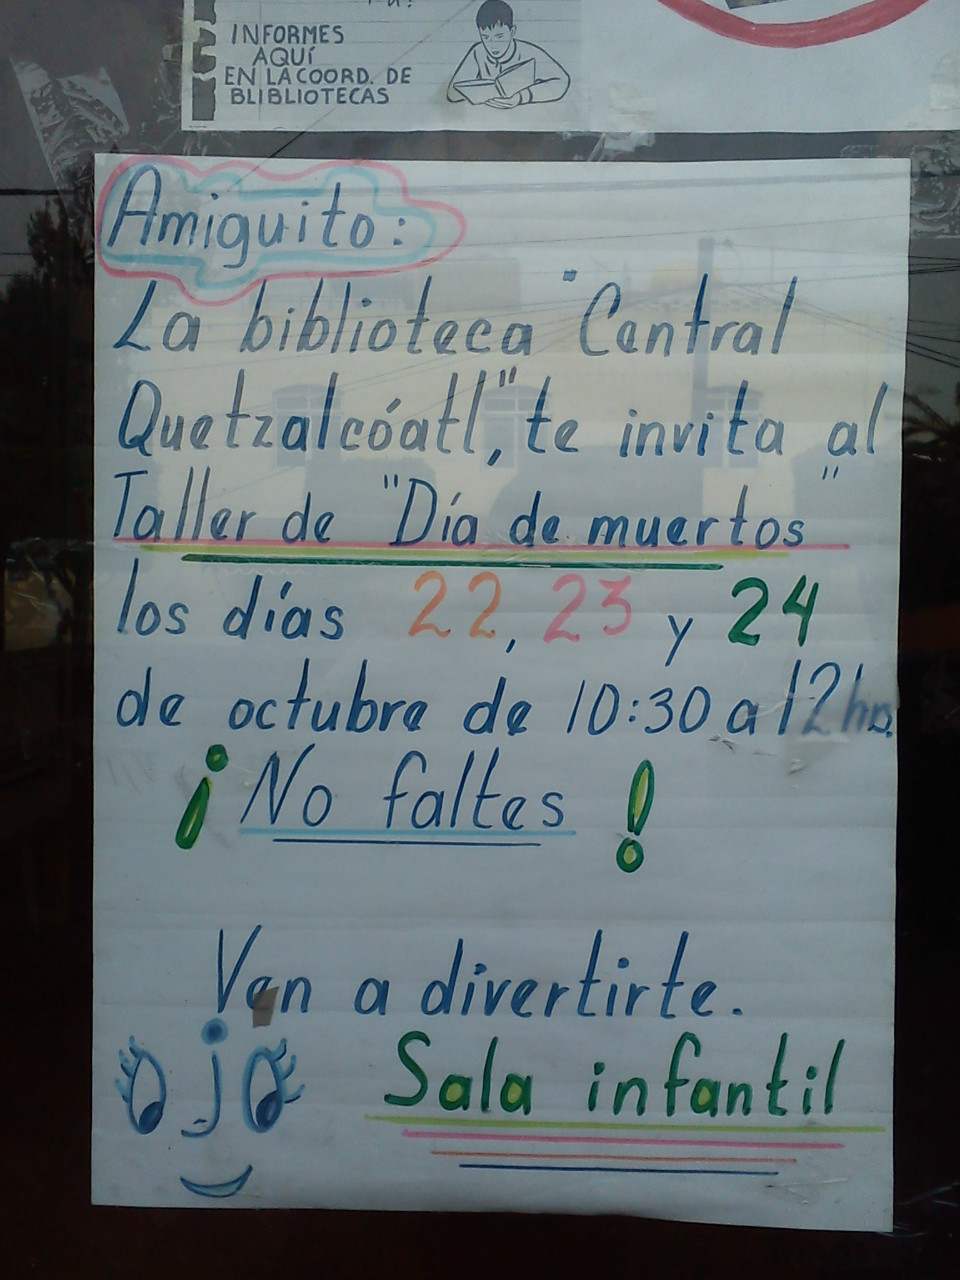 INFORMES
AQUÍ
EN LA COORD. DE
BLIBLIOTECAS
Amiguito:
La biblioteca "Central
Quetzalcóatl", te invita al
Taller de "Día de muertos"
los días 22, 23 y 24
de octubre de 10:30 a 12 hrs.
¡No faltes!
Ven a divertirte.
Ojo
Sala infantil